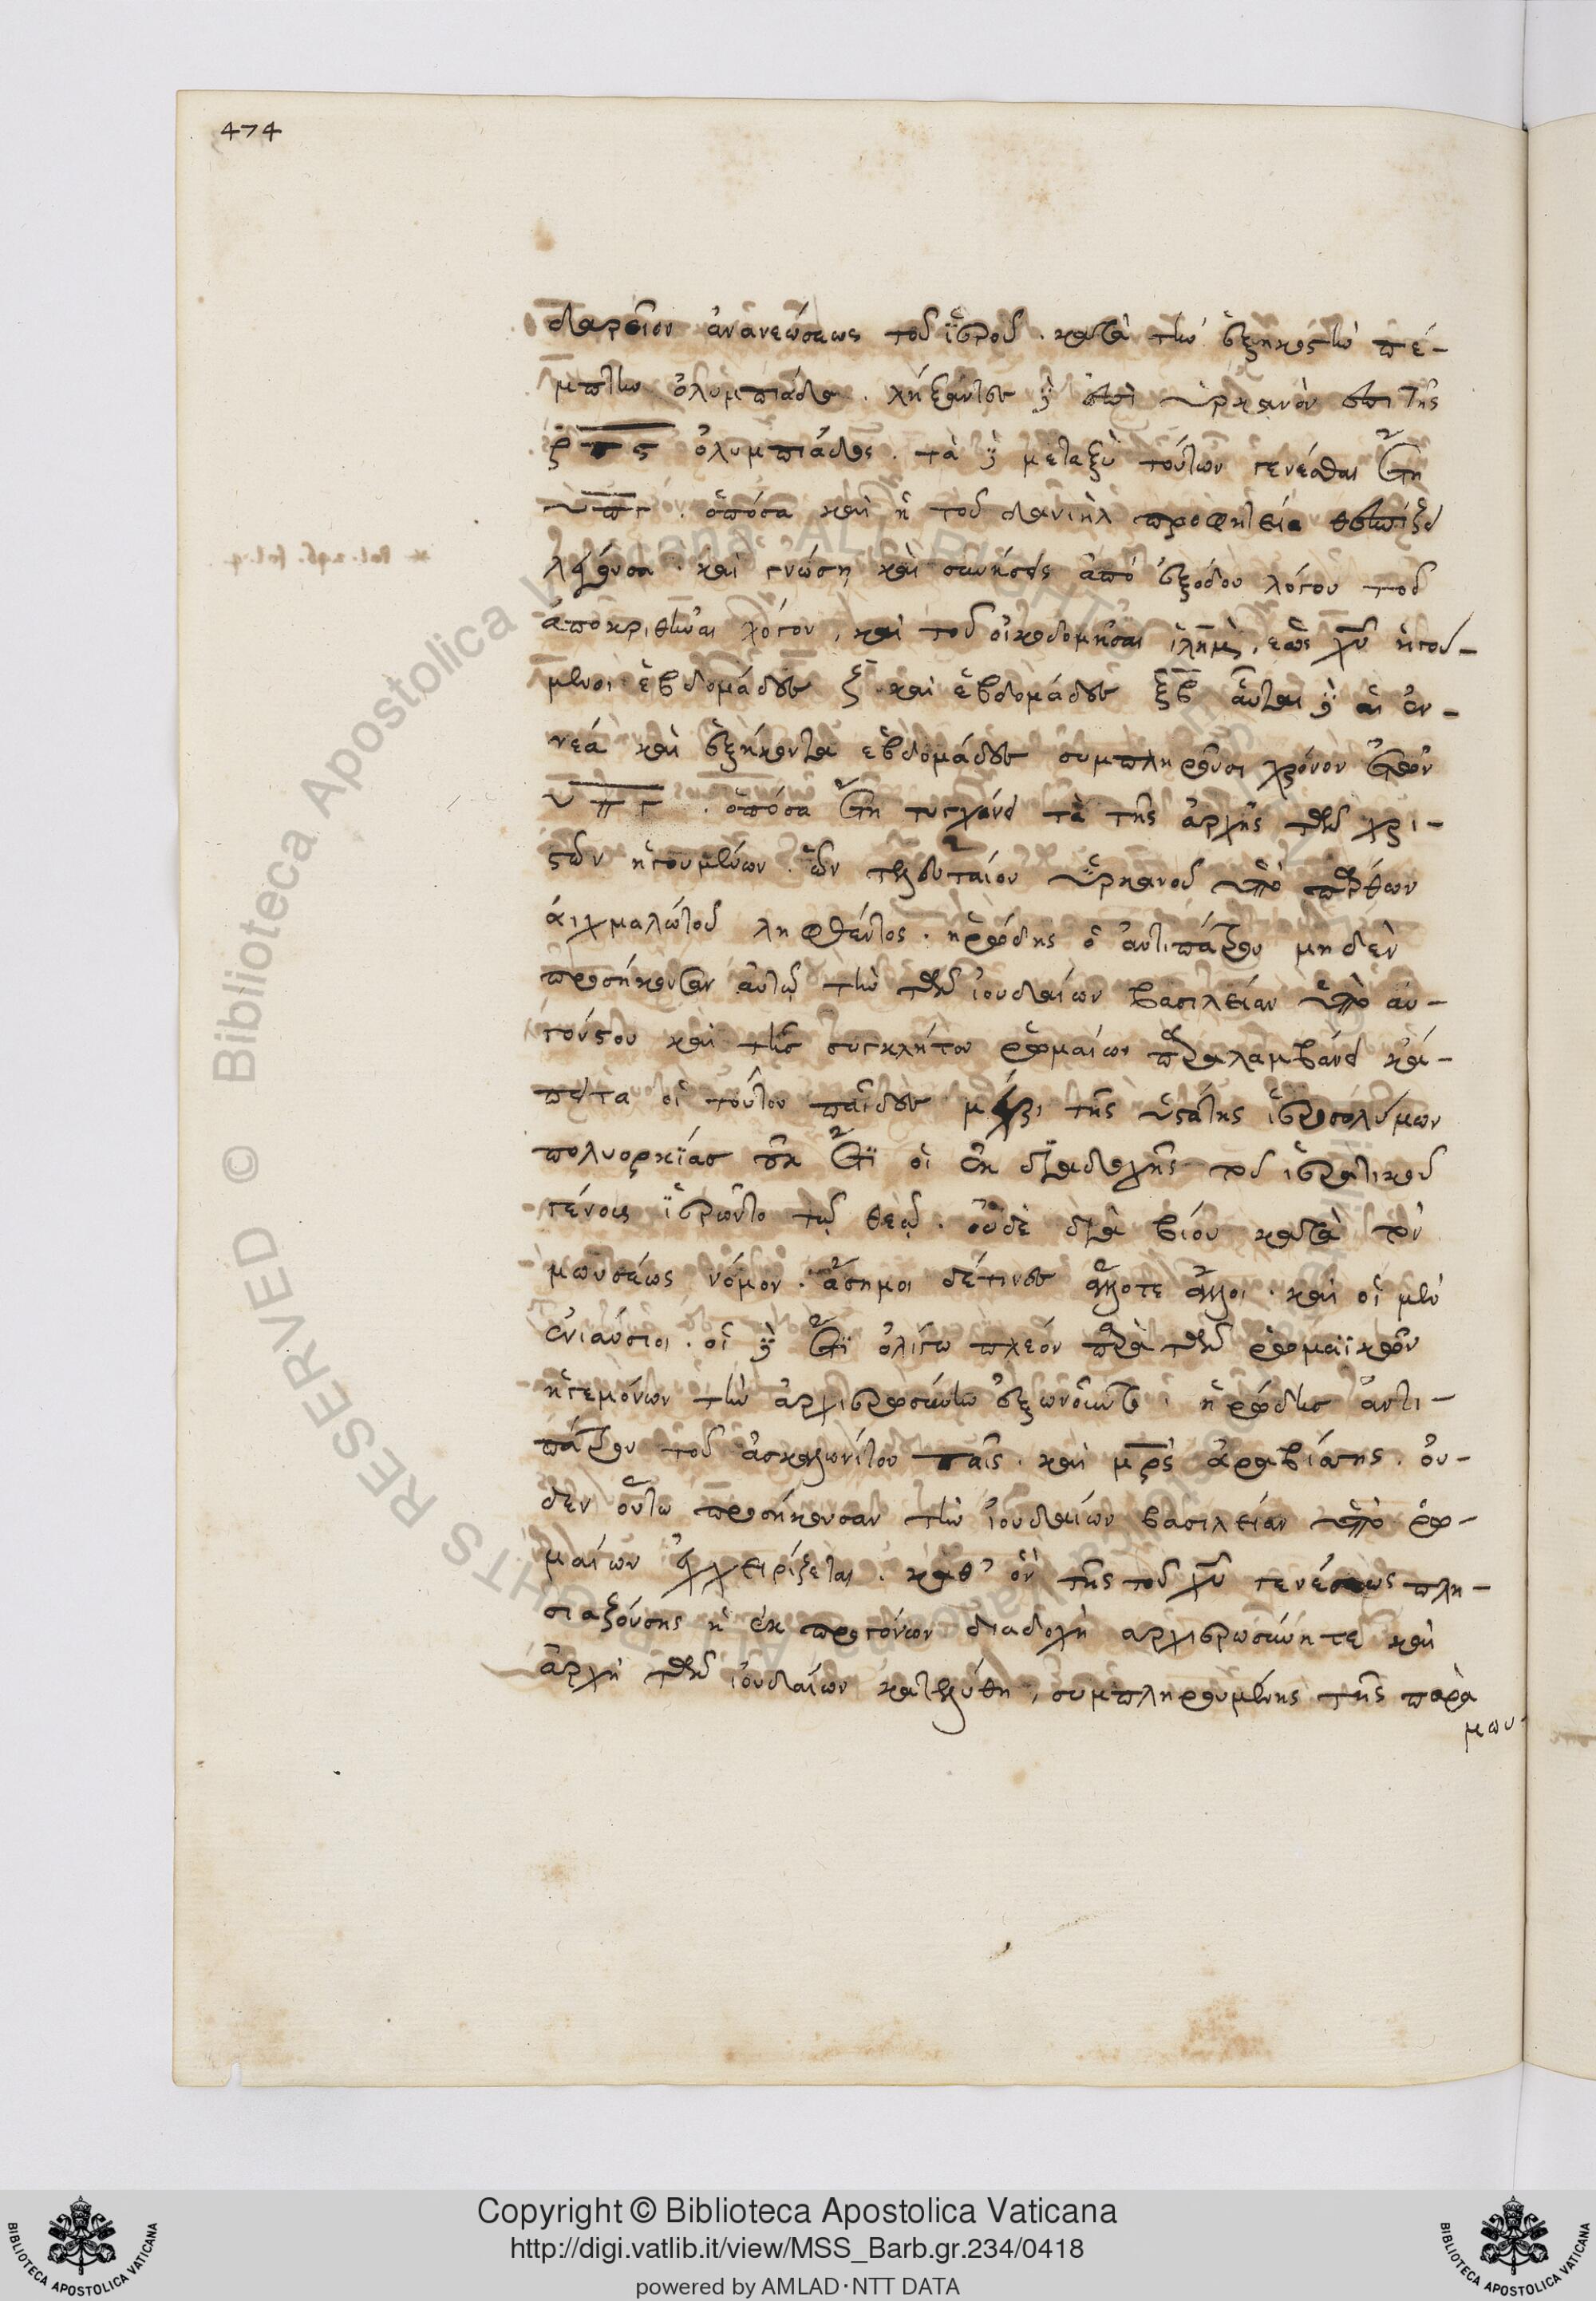 474
δαρεῖον ἀνανεώσεως τοῦ ἱεροῦ. κατὰ τὴν ἑξηκοστὴν πέ-
μπτην ὀλυμπιάδα. λήξαντες δὲ ἐπὶ ὑρκανὸν ἐπὶ τῆς
ρπς ὀλυμπιάδος. τὰ δὲ μεταξὺ τούτων γενέσθαι ἔτη
υπγ. ὁπόσα καὶ ἡ τοῦ δανιὴλ προφητεία θεσπίζει
λέγουσα. καὶ γνώση καὶ συνήσεις ἀπὸ ἐξόδου λόγου τοῦ
ἀποκριθῆναι λόγον, καὶ τοῦ οἰκοδομῆσαι ἰλημ, ἕως χυ ἡγου-
μένου ἑβδομάδες ζ καὶ ἑβδομάδες ξβ αὗται δὲ αἱ ἐν-
νέα καὶ ἑξήκοντα ἑβδομάδες συμπληροῦσι χρόνον ἐτῶν
υπγ. ὁπόσα ἔτη τυγχάνει τὰ τῆς ἀρχῆς τῶν χρι-
στῶν ἡγουμένων. ὧν τελευταίου ὑρκανοῦ ὑπὸ πάρθων
αἰχμαλώτου ληφθέντος. ἡρώδης ὁ ἀντιπάτρου μηδὲν
προσήκουσαν αὐτῷ τὴν τῶν ἰουδαίων βασιλείαν ὑπὸ αὐ-
γούστου καὶ τῆς συγκλήτου ῥωμαίων παραλαμβάνει κά-
πειτα οἱ τούτου παῖδες μέχρι τῆς ὑστάτης ἱεροσολύμων
πολυορκίας οὐκ ἔτι οἱ ἐκ διαδοχῆς τοῦ ἱερατικοῦ
γένους ἱερῶντο τῷ θεῷ. οὐδὲ διὰ βίου κατὰ τὸν
μωυσέως νόμον. ἄσημοι δέ τινες ἄλλοτε ἄλλοι. καὶ οἱ μὲν
ἐνιαύσιοι. οἱ δὲ ἔτι ὀλίγω πλέον παρὰ τῶν ῥωμαϊκῶν
ἡγεμόνων τὴν ἀρχιερωσύνην ἐξωνοῦντο. ἡρώδης ἀντι-
πάτρου τοῦ ἀσκαλωνίτου παῖς. καὶ μρς ἀραβίασης. οὐ-
δὲν οὕτω προσήκουσαν τὴν ἰουδαίων βασιλείαν ὑπὸ ῥω-
μαίων ἐγχειρίζεται. καθ' ὃν τῆς τοῦ χυ γενέσεως πλη-
σιαζούσης ἡ ἐκ προγόνων διαδοχὴ ἀρχιερωσύνη τε καὶ
ἀρχὴ τῶν ἰουδαίων κατελύθη, συμπληρουμένης τῆς παρὰ
μωυ-
Copyright © Biblioteca Apostolica Vaticana
http://digi.vatlib.it/view/MSS_Barb.gr.234/0418
powered by AMLAD·NTT DATA